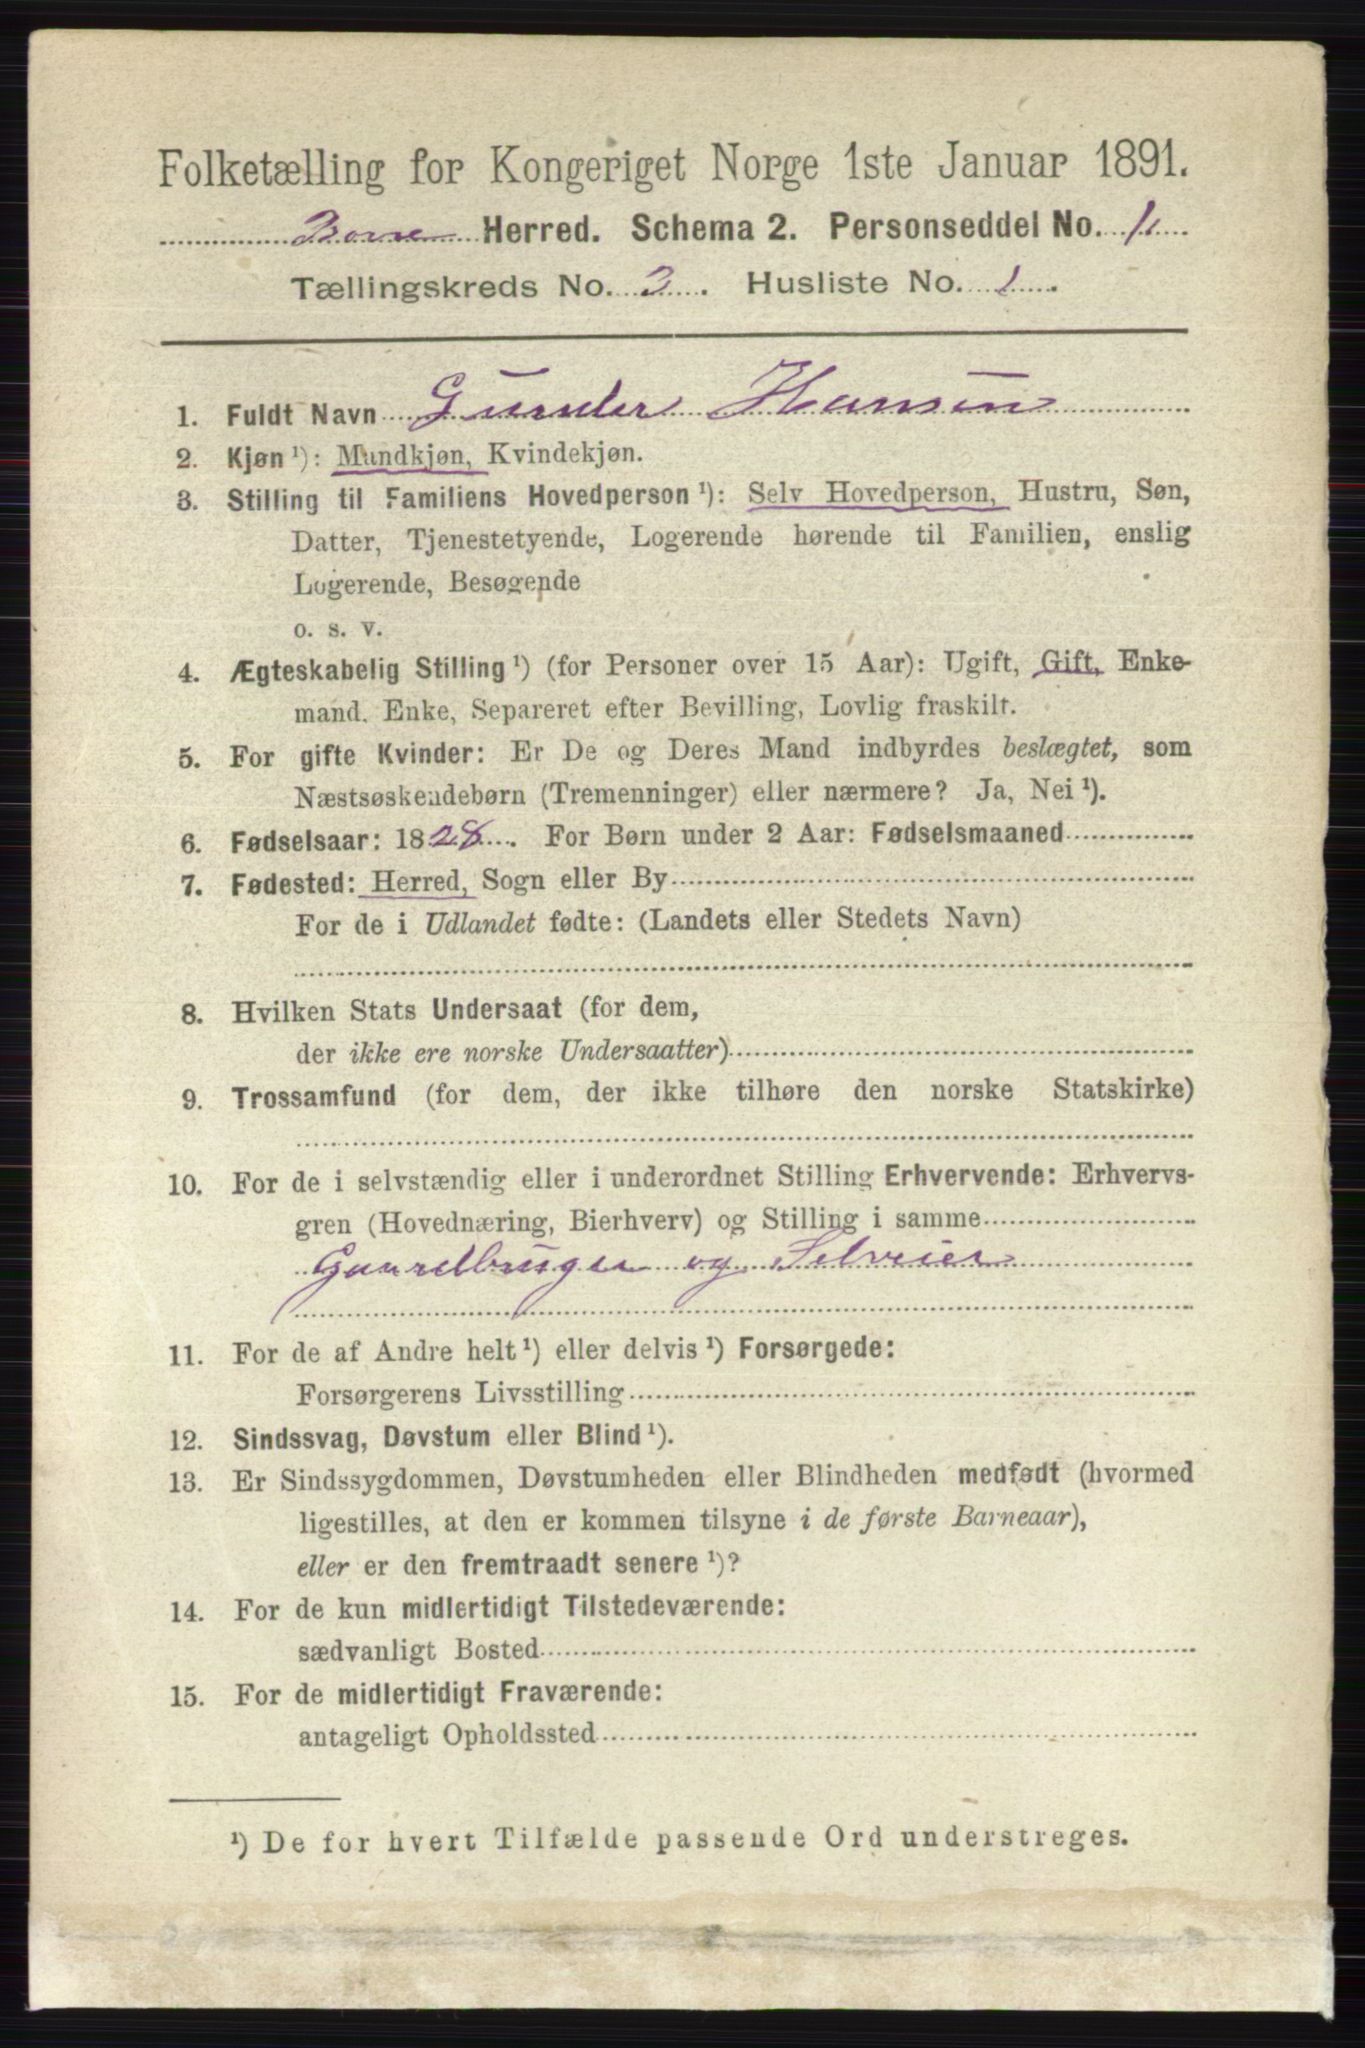 Folketælling for Kongeriget Norge 1ste Januar 1891.
Borre Herred. Schema 2. Personseddel No. 1.
Tællingskreds No. 3. Husliste No. 1.
1. Fuldt Navn Gunder Hansen
2. Kjøn ¹): Mandkjøn, Kvindekjøn.
3. Stilling til Familiens Hovedperson ¹): Selv Hovedperson, Hustru, Søn,
Datter, Tjenestetyende, Logerende hørende til Familien, enslig
Logerende, Besøgende
o. s. v.
4. Ægteskabelig Stilling ¹) (for Personer over 15 Aar): Ugift, Gift, Enke-
mand, Enke, Separeret efter Bevilling, Lovlig fraskilt.
5. For gifte Kvinder: Er De og Deres Mand indbyrdes beslægtet, som
Næstsøskendebørn (Tremenninger) eller nærmere? Ja, Nei ¹).
6. Fødselsaar: 1828. For Børn under 2 Aar: Fødselsmaaned
7. Fødested: Herred, Sogn eller By
For de i Udlandet fødte: (Landets eller Stedets Navn)
8. Hvilken Stats Undersaat (for dem,
der ikke ere norske Undersaatter)
9. Trossamfund (for dem, der ikke tilhøre den norske Statskirke)
10. For de i selvstændig eller i underordnet Stilling Erhvervende: Erhvervs-
gren (Hovednæring, Bierhverv) og Stilling i samme
Gaardbruger og Selveier
11. For de af Andre helt ¹) eller delvis ¹) Forsørgede:
Forsørgerens Livsstilling
12. Sindssvag, Døvstum eller Blind ¹).
13. Er Sindssygdommen, Døvstumheden eller Blindheden medfødt (hvormed
ligestilles, at den er kommen tilsyne i de første Barneaar),
eller er den fremtraadt senere ¹)?
14. For de kun midlertidigt Tilstedeværende:
sædvanligt Bosted
15. For de midlertidigt Fraværende:
antageligt Opholdssted
¹) De for hvert Tilfælde passende Ord understreges.